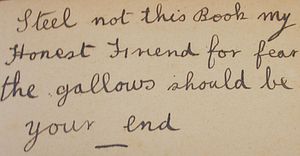 Steel not this Book my
Honest Friend for fear
the gallows should be
your end